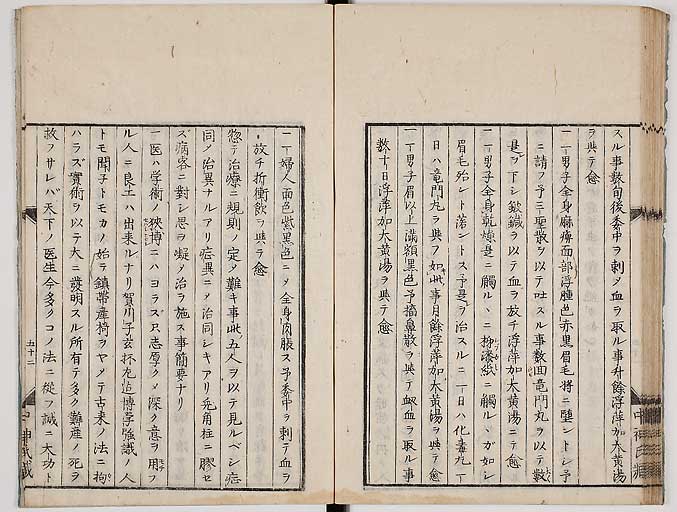 スル事数旬後委中ヲ刺メ血ヲ取ル事升餘浮萍加大黄湯
ヲ與テ愈
一一男子全身麻痺面部浮腫色赤黒眉毛将ニ墮ントシ予
ニ請フ予三聖散ヲ以テ吐スル事数面竜門丸ヲ以テ数
是ヲ下シ鈹鍼ヲ以テ血ヲ放チ浮萍加大黄湯ニテ愈
一一男子全身乾燥是ニ觸ルヽニ柳漆紙ニ觸ルヽガ如シ
眉毛殆ント落ントス予是ヲ治スルニ一日ハ化毒丸一
日ハ竜門丸ヲ與フ如此事月餘浮萍加大黄湯ヲ與テ愈
一一男子眉以上満額黒色予搐鼻散ヲ與テ衂血ヲ取ル事
数十日浮萍加大黄湯ヲ與テ愈
一一婦人面色紫黒色ニメ全身肉脹ス予委中ヲ刺テ血ヲ
放チ折衝飲ヲ與テ愈
惣テ治療ニ規則ノ定メ難キ事此五人ヲ以テ見ルベシ症
同メ治異ナルアリ症異ニメ治同シキアリ兎角柱ニ膠セ
ズ病客ニ對シ思ヲ凝メ治ヲ施ス事簡要ナリ
一医ハ学術ノ狹博ニハヨラズ只志厚クメ深ク意ヲ用フ
ル人ニ良工ハ出来ルナリ賀川子玄杯左迄博学強識ノ人
トモ聞子トモカノ始ヲ鎮帯産椅ヲヤメテ古来ノ法ニ拘
ハラズ實術ヲ以テ大ニ發明スル所有テ多ク難産ノ死ヲ
救フサレバ天下ノ医生今多クコノ法ニ從フ誠ニ大功ト
五十二
中神氏蔵